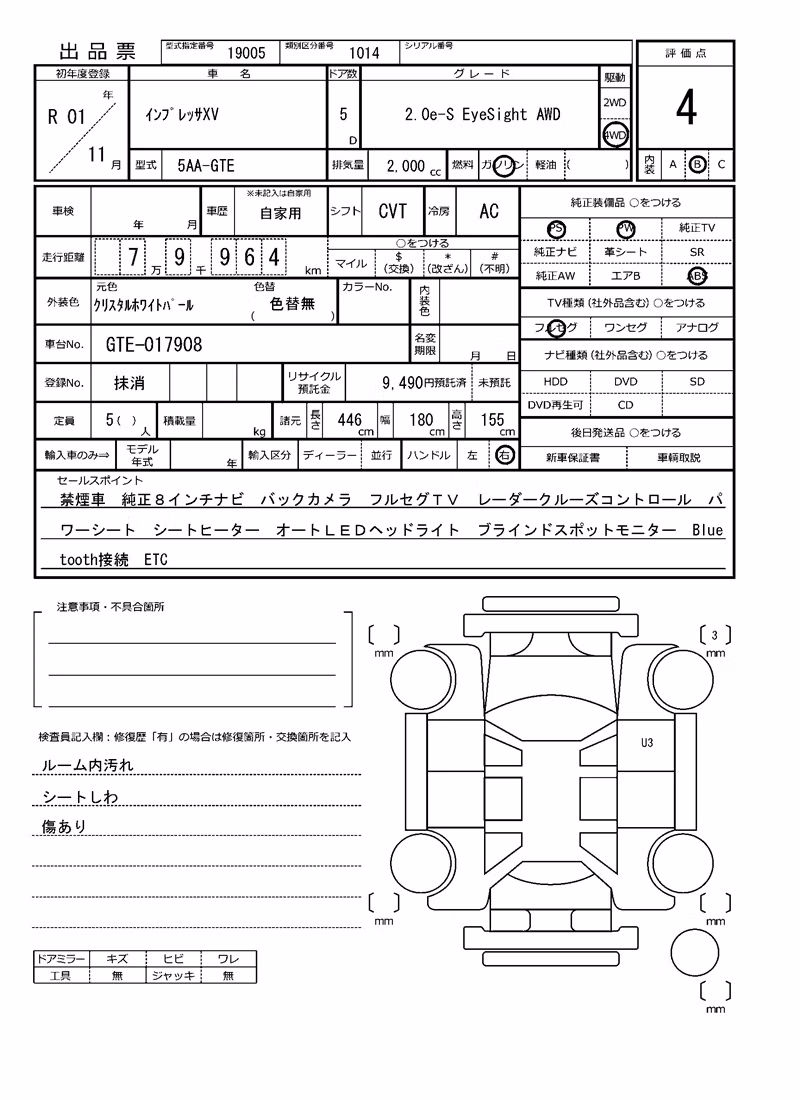 出品票 型式指定番号 19005 類別区分番号 1014 シリアル番号
評価点
4
内装 A B C
初年度登録 車名 ドア数 グレード 駆動
R 01 年 11 月 ｲﾝﾌﾟﾚｯｻXV 5 D 2.0e-S EyeSight AWD 2WD
4WD
型式 5AA-GTE 排気量 2,000 cc 燃料 ガソリン 軽油 ( )
車検 年 月 車歴 ※未記入は自家用
自家用 シフト CVT 冷房 AC
走行距離 7 万 9 千 9 6 4 km ○をつける
マイル $(交換) *(改ざん) #(不明)
外装色 元色 ｸﾘｽﾀﾙﾎﾜｲﾄﾊﾟｰﾙ 色替 ( 色替無 ) カラーNo. 内装色
車台No. GTE-017908 名変期限 月 日
登録No. 抹消 リサイクル預託金 9,490円預託済 未預託
定員 5( ) 人 積載量 kg 諸元 長さ 446 cm 幅 180 cm 高さ 155 cm
輸入車のみ⇒ モデル年式 年 輸入区分 ディーラー 並行 ハンドル 左 右
純正装備品 ○をつける
PS PW 純正TV
純正ナビ 革シート SR
純正AW エアB ABS
TV種類(社外品含む) ○をつける
フルセグ ワンセグ アナログ
ナビ種類(社外品含む) ○をつける
HDD DVD SD
DVD再生可 CD
後日発送品 ○をつける
新車保証書 車輌取説
セールスポイント
禁煙車 純正８インチナビ バックカメラ フルセグＴＶ レーダークルーズコントロール パ
ワーシート シートヒーター オートＬＥＤヘッドライト ブラインドスポットモニター Blue
tooth接続 ETC
注意事項・不具合箇所
検査員記入欄：修復歴「有」の場合は修復箇所・交換箇所を記入
ルーム内汚れ
シートしわ
傷あり
ドアミラー キズ ヒビ ワレ
工具 無 ジャッキ 無
( ) mm
( 3 ) mm
U3
( ) mm
( ) mm
( ) mm